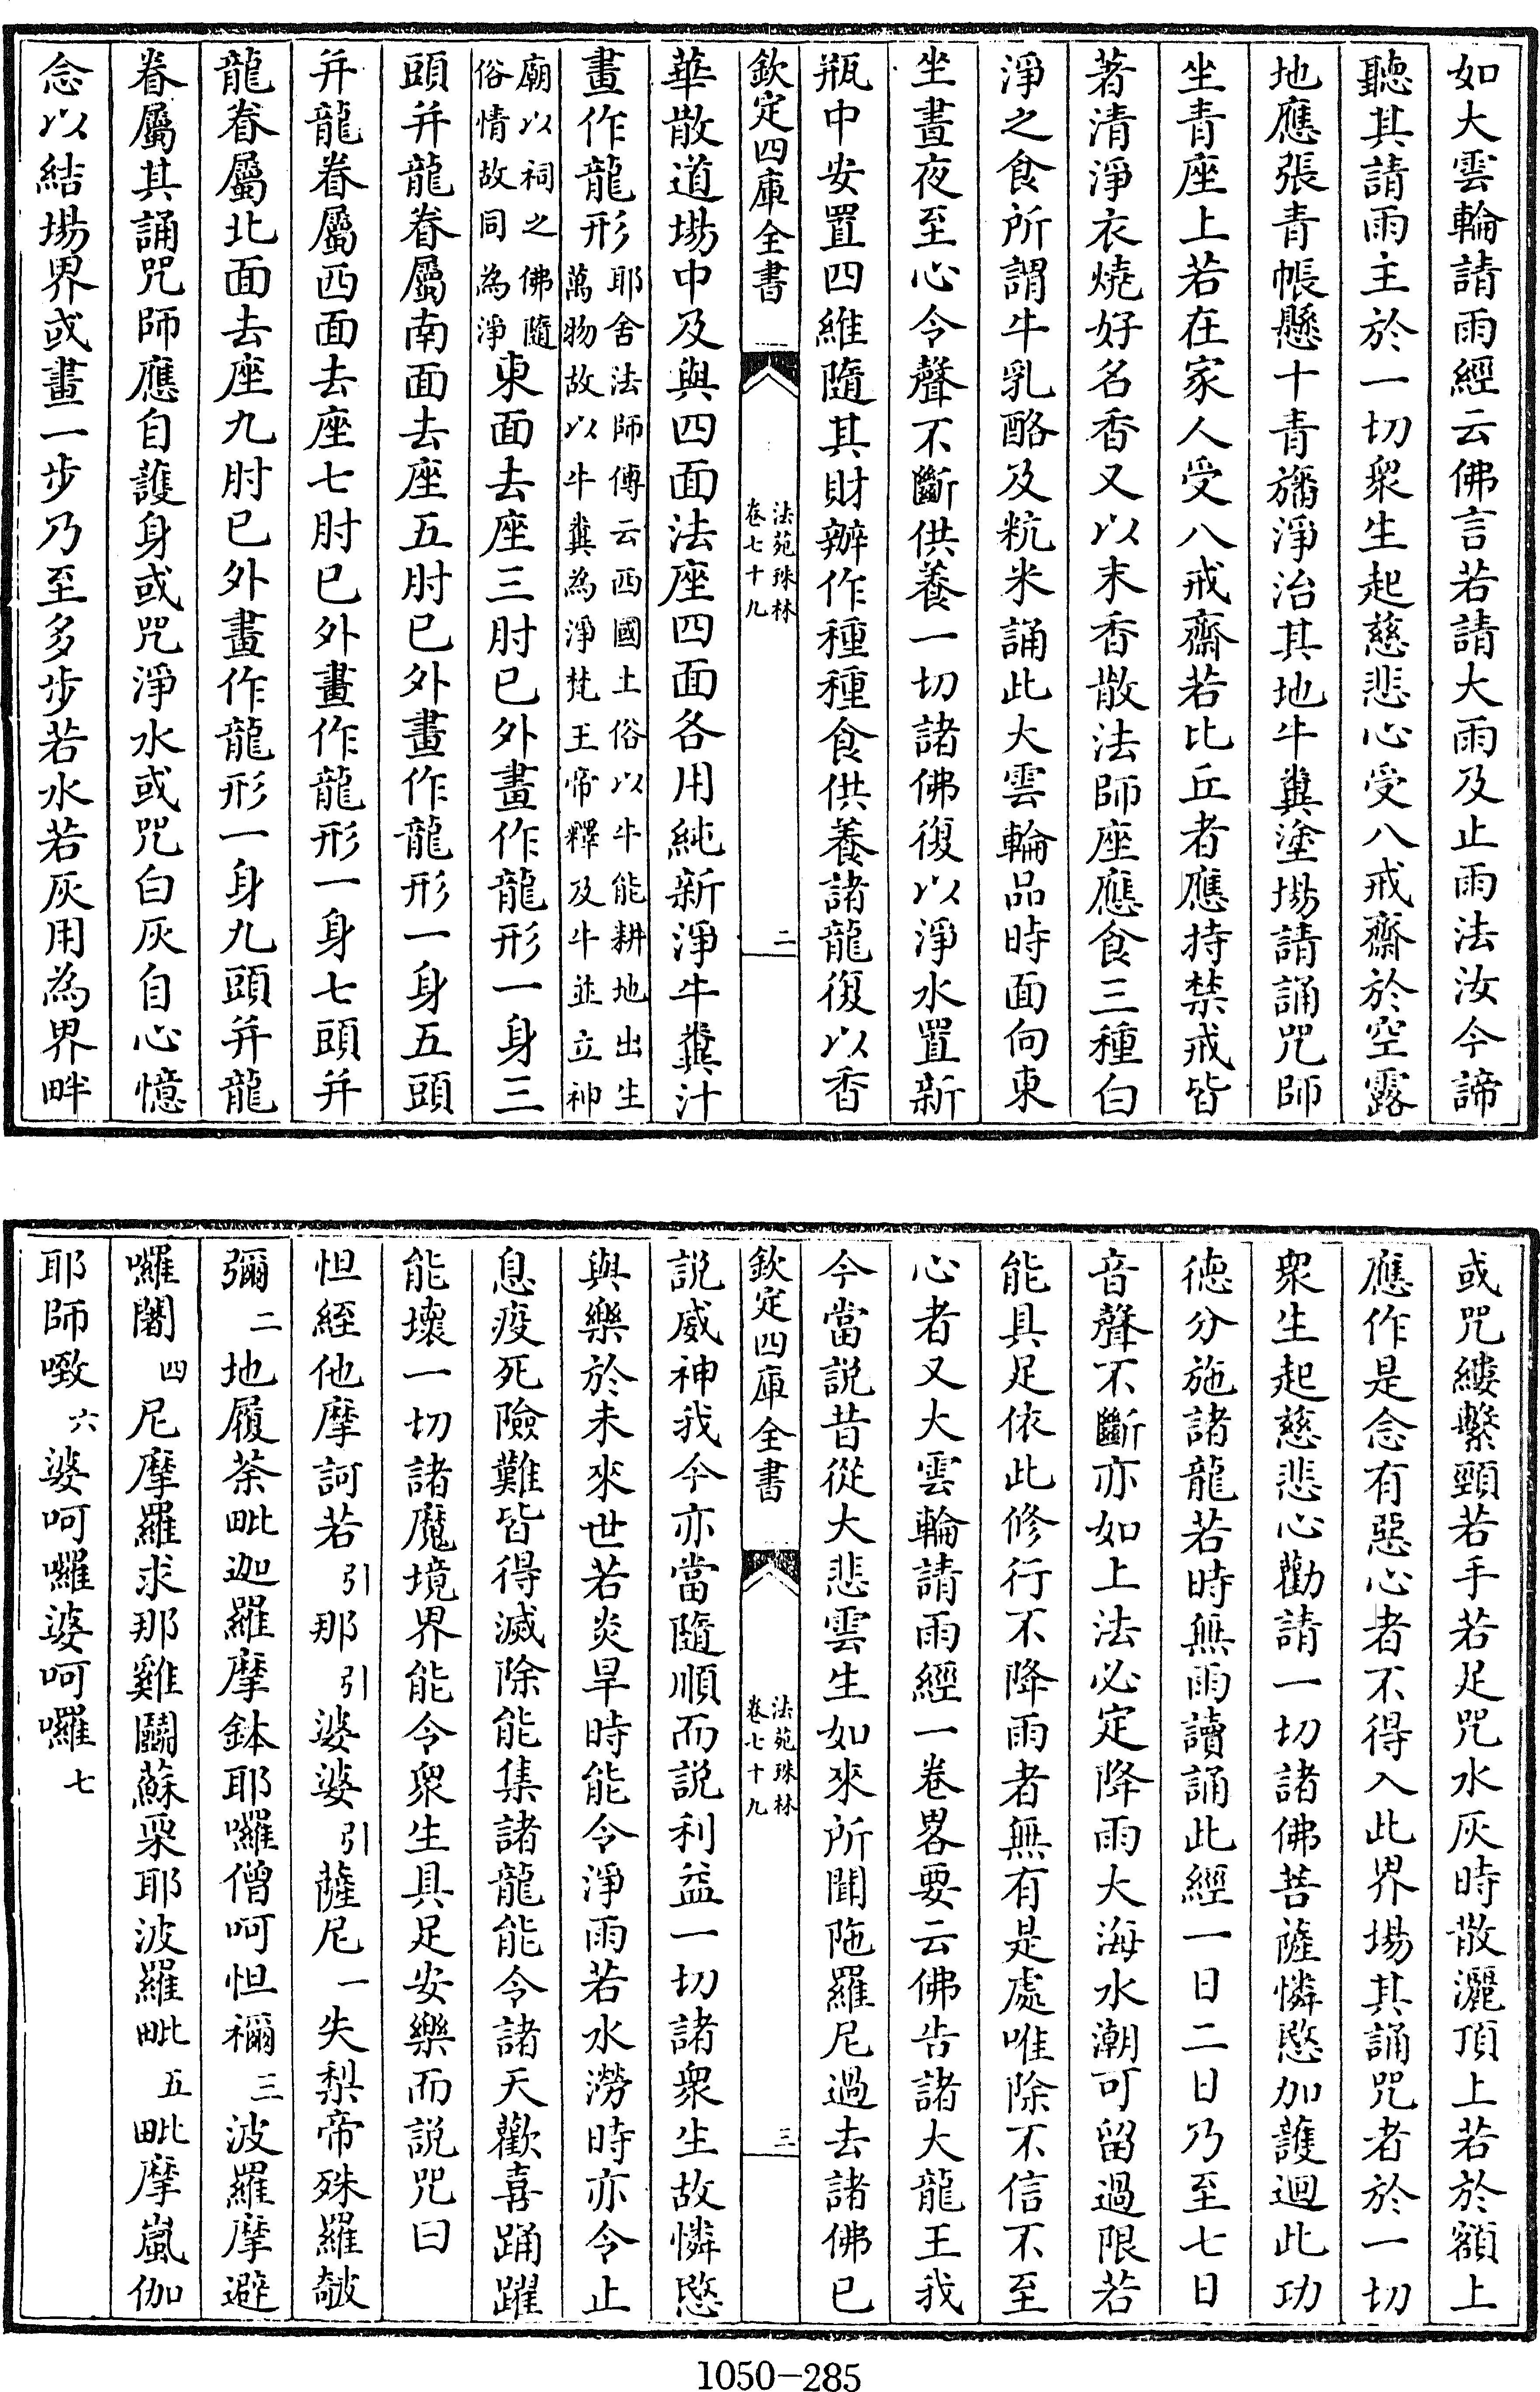 如大雲輪請雨經云佛言若請大雨及止雨法汝今諦
聽其請雨主於一切衆生起慈悲心受八戒齋於空露
地應張青帳懸十青旛淨治其地牛糞塗場請誦咒師
坐青座上若在家人受八戒齋若比丘者應持禁戒皆
著清淨衣燒好名香又以末香散法師座應食三種白
淨之食所謂牛乳酪及粇米誦此大雲輪品時面向東
坐晝夜至心令聲不斷供養一切諸佛復以淨水置新
瓶中安置四維隨其財辦作種種食供養諸龍復以香
欽定四庫全書 法苑珠林 卷七十九 二
華散道場中及與四面法座四面各用純新淨牛糞汁
畫作龍形耶舍法師傳云西國土俗以牛能耕地出生萬物故以牛糞為淨梵王帝釋及牛並立神
廟以祠之佛隨俗情故同為淨東面去座三肘已外畫作龍形一身三
頭并龍眷屬南面去座五肘已外畫作龍形一身五頭
并龍眷屬西面去座七肘已外畫作龍形一身七頭并
龍眷屬北面去座九肘已外畫作龍形一身九頭并龍
眷屬其誦咒師應自護身或咒淨水或咒白灰自心憶
念以結場界或畫一步乃至多步若水若灰用為界畔
或咒縷繫頸若手若足咒水灰時散灑頂上若於額上
應作是念有惡心者不得入此界場其誦咒者於一切
衆生起慈悲心勸請一切諸佛菩薩憐愍加護迴此功
德分施諸龍若時無雨讀誦此經一日二日乃至七日
音聲不斷亦如上法必定降雨大海水潮可留過限若
能具足依此修行不降雨者無有是處唯除不信不至
心者又大雲輪請雨經一卷畧要云佛告諸大龍王我
今當説昔從大悲雲生如來所聞陁羅尼過去諸佛已
欽定四庫全書 法苑珠林 卷七十九 三
説威神我今亦當隨順而説利益一切諸衆生故憐愍
與樂於未來世若炎旱時能令淨雨若水澇時亦令止
息疫死險難皆得滅除能集諸龍能令諸天歡喜踊躍
能壞一切諸魔境界能令衆生具足安樂而説咒曰
怛絰他摩訶若引那引婆婆引薩尼一失梨帝殊羅𣬈
彌二地履荼毗迦羅摩鉢耶囉僧呵怛禰三波羅摩避
囉闍四尼摩羅求那雞鬬蘇栗耶波羅毗五毗摩嵐伽
耶師㗭六婆呵囉婆呵囉七
1050-285